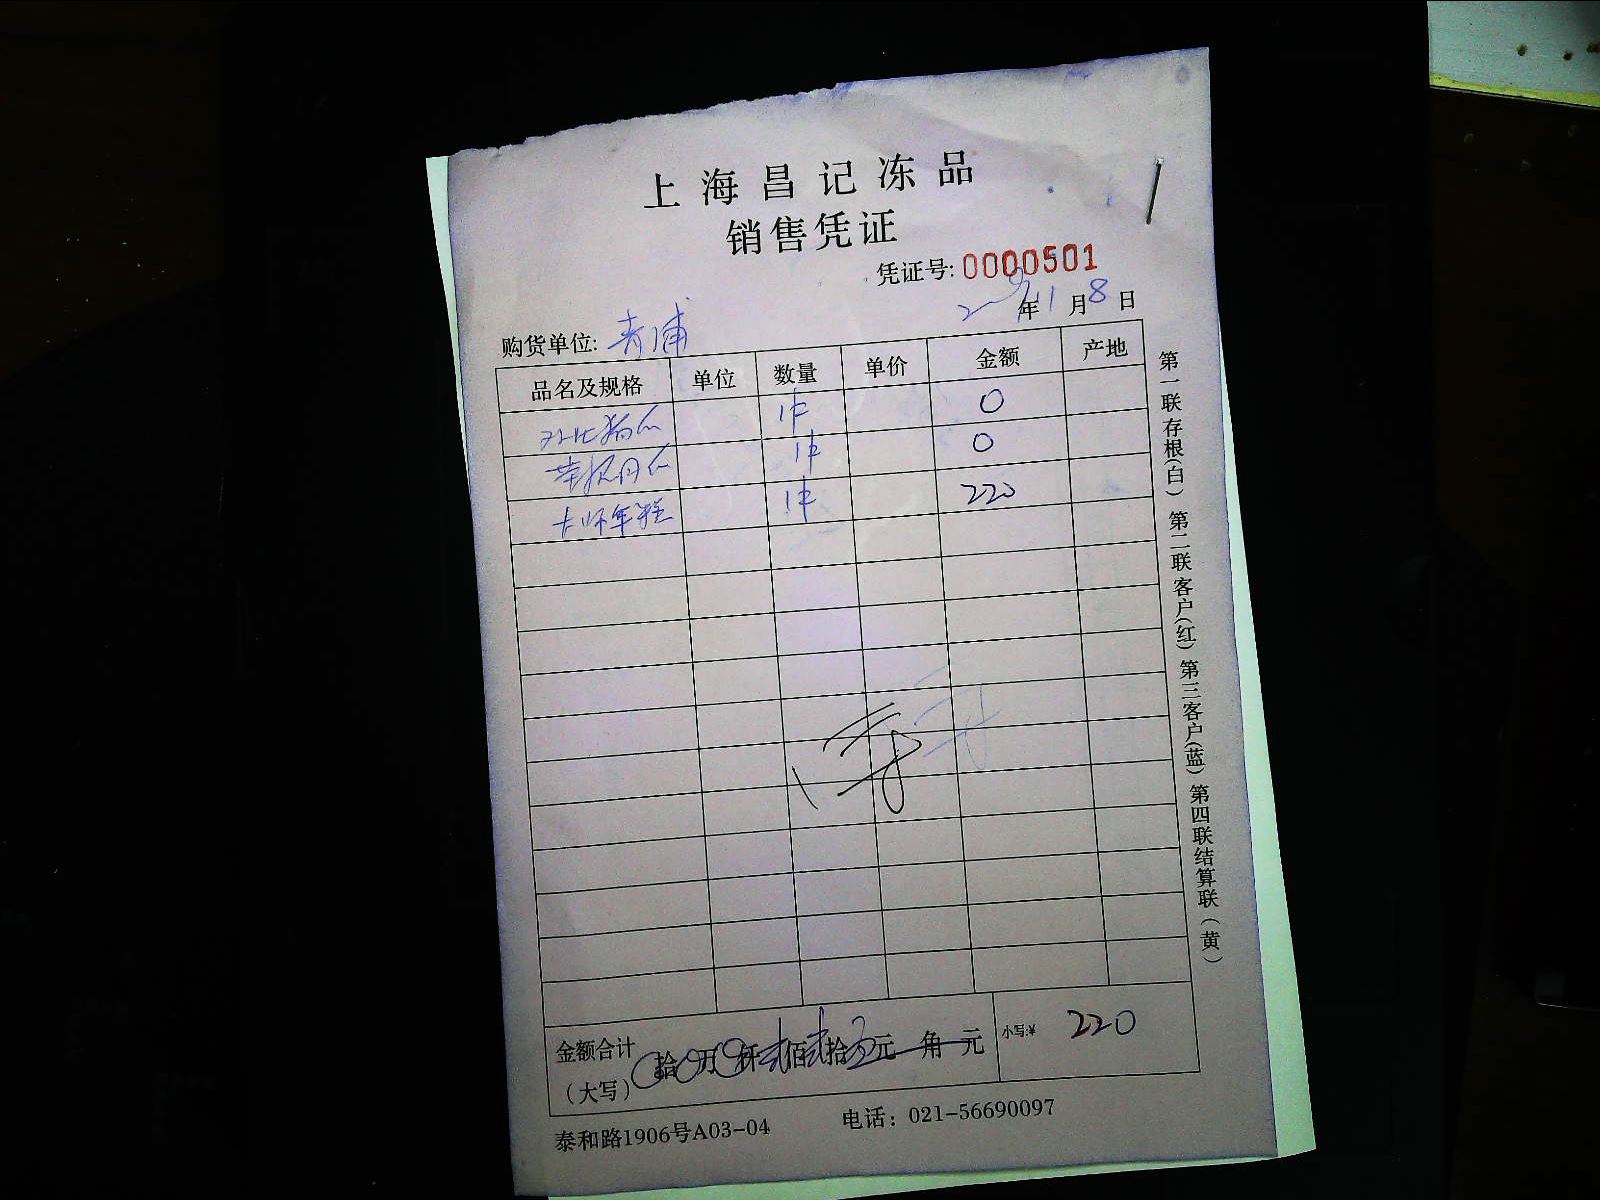 上海昌记冻品
销售凭证
凭证号: 0000501
年 1 月 8 日
购货单位: 青浦
品名及规格 单位 数量 单价 金额 产地
1件 0
1件 0
1件 220
金额合计 拾 万 仟 贰佰贰拾 元 角 元 小写:¥ 220
(大写)
泰和路1906号A03-04 电话: 021-56690097
第一联存根(白) 第二联客户(红) 第三客户(蓝) 第四联结算联(黄)